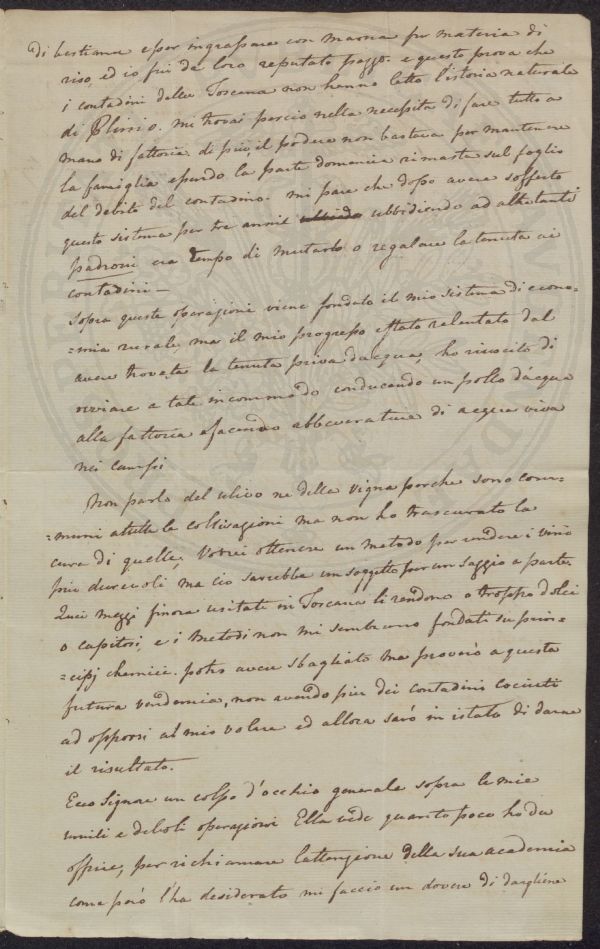 di bestiame e per ingrassare con marna fu materia di
riso, ed io fui da loro reputato pazzo. e questo prova che
i contadini della Toscana non hanno letto l'istoria naturale
di Plinio. mi trovai perciò nella necessita di fare tutto a
mano di fattoria. di più, il podere non bastava per mantenere
la famiglia e perdo la parte domenica rimasta sul foglio
del debito del contadino. mi pare che dopo avere sofferto
questo sistema per tre anni ubbidendo ad altretanti
padroni era tempo di mutarlo o regalare la tenuta ai
contadini —
Sopra queste operazioni viene fondato il mio sistema di econo=
=mia rurale, ma il mio progresso e stato relentato dal
avere trovata la tenuta priva d'acqua, ho riuscito di
ovviare a tale incommodo conducendo un pollo d'acqua
alla fattoria e facendo abbeveratura di acqua viva
nei campi
Non parlo del ulivo ne della vigna perche sono com=
=muni a tutte le coltivazioni ma non ho trascurato la
cura di quelle, Vorrei ottenere un metodo per rendere i vini
piu durevoli ma cio sarebbe un soggetto per un saggio a parte.
Quei mezzi finora usitati in Toscana li rendono o troppo dolci
o capitosi, e i metodi non mi sembrano fondati su prin=
=cipj chemici. potrò avere sbagliato ma proverò a questa
futura vendemia, non avendo piu dei contadini cociuti
ad opporsi al mio volere ed allora sarò in istato di darne
il risultato.
Ecco Signore un colpo d'occhio generale sopra le mie
umili e deboli operazioni Ella vede quanto poco ho da
offrire, per richiamare l'attenzione della sua academia
come però l'ha desiderato mi faccio un dovere di dargliene